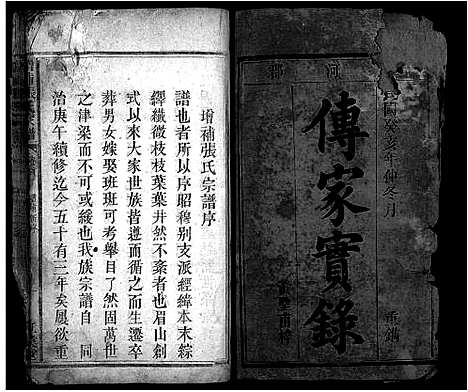 河郡
民國癸亥年仲冬月
傳家實錄
重鐫
增補張氏宗譜序
譜也者所以序昭穆别支派經緯本末綜
繹纖微枝枝葉葉井然不紊者也眉山創
式以來大家世族皆遵而循之而生遷卒
葬男女嫁娶班班可考舉目了然固萬世
之津梁而不可或緩也我族宗譜自同
治庚午續修迄今五十有三年矣屢欲重